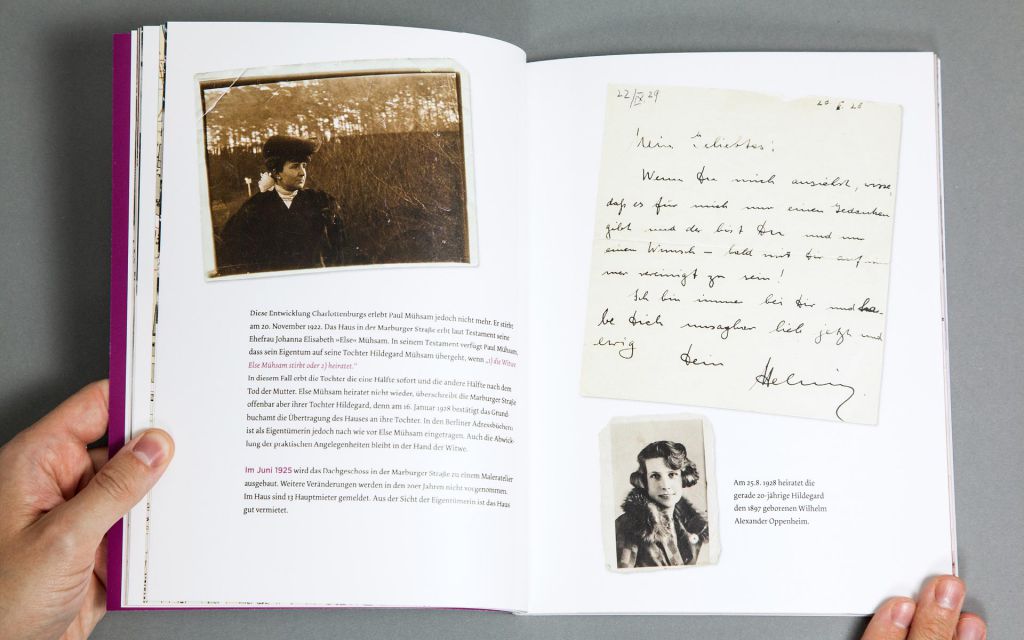 Diese Entwicklung Charlottenburgs erlebt Paul Mühsam jedoch nicht mehr. Er stirbt
am 20. November 1922. Das Haus in der Marburger Straße erbt laut Testament seine
Ehefrau Johanna Elisabeth »Else« Mühsam. In seinem Testament verfügt Paul Mühsam,
dass sein Eigentum auf seine Tochter Hildegard Mühsam übergeht, wenn „1) die Witwe
Else Mühsam stirbt oder 2) heiratet.“
In diesem Fall erbt die Tochter die eine Hälfte sofort und die andere Hälfte nach dem
Tod der Mutter. Else Mühsam heiratet nicht wieder, überschreibt die Marburger Straße
offenbar aber ihrer Tochter Hildegard, denn am 16. Januar 1928 bestätigt das Grund-
buchamt die Übertragung des Hauses an ihre Tochter. In den Berliner Adressbüchern
ist als Eigentümerin jedoch nach wie vor Else Mühsam eingetragen. Auch die Abwick-
lung der praktischen Angelegenheiten bleibt in der Hand der Witwe.
Im Juni 1925 wird das Dachgeschoss in der Marburger Straße zu einem Maleratelier
ausgebaut. Weitere Veränderungen werden in den 20er Jahren nicht vorgenommen.
Im Haus sind 13 Hauptmieter gemeldet. Aus der Sicht der Eigentümerin ist das Haus
gut vermietet.
22/IX 29
Mein Geliebtes!
Wenn Du mich ansiehst,
daß es für mich nur einen Gedanken
gibt und der bist Du und nur
einen Wunsch – bald mit Dir auf im-
mer vereinigt zu sein!
Ich bin immer bei Dir und ha-
be Dich unsagbar lieb jetzt und
ewig
Dein
Am 25.8. 1928 heiratet die
gerade 20-jährige Hildegard
den 1897 geborenen Wilhelm
Alexander Oppenheim.